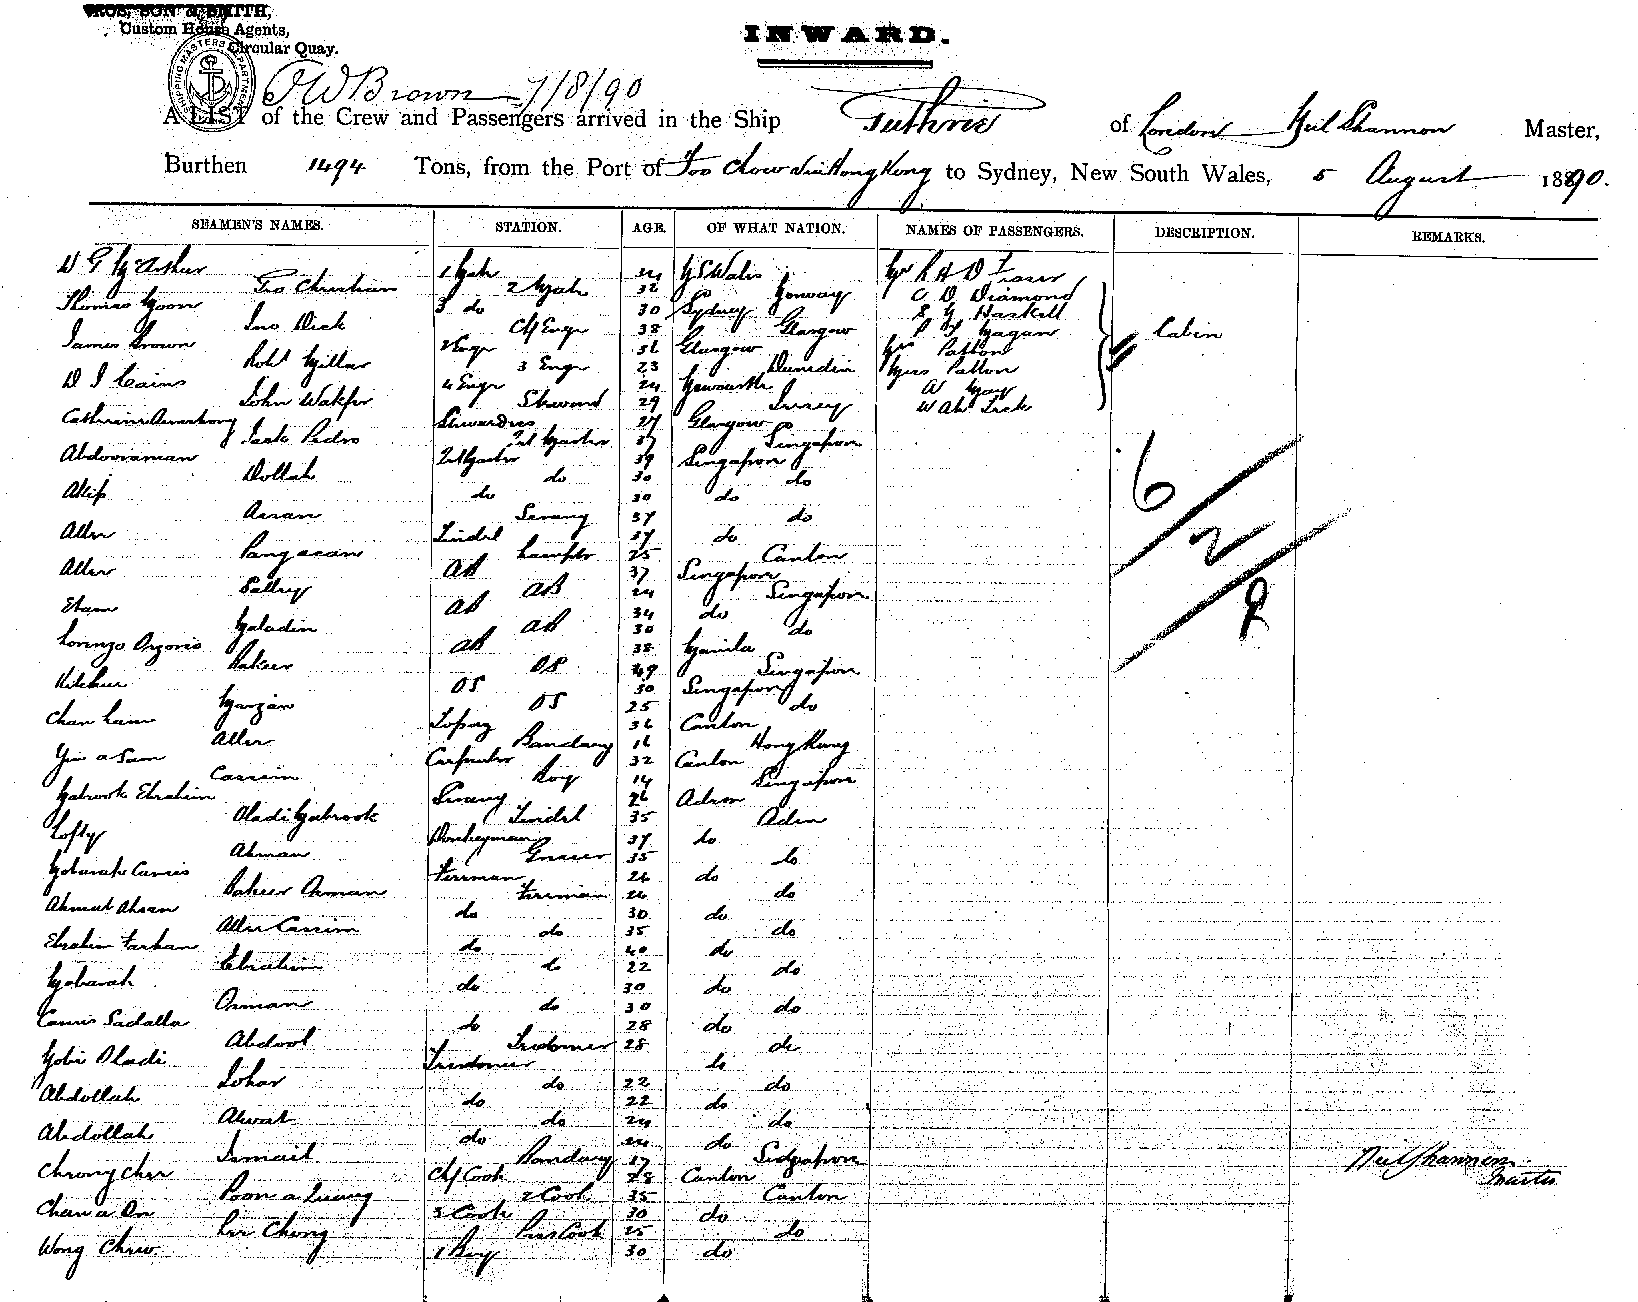 SON & SMITH,
Custom House Agents,
Circular Quay.
INWARD.
SHIPPING MASTERS DEPARTMENT
Brown 7/8/90
A LIST of the Crew and Passengers arrived in the Ship Guthrie of London Neil Shannon Master,
Burthen 1494 Tons, from the Port of Foo Chow via Hong Kong to Sydney, New South Wales, 5 August 1890.
SEAMEN'S NAMES. STATION. AGE. OF WHAT NATION. NAMES OF PASSENGERS. DESCRIPTION. REMARKS.
D G McArthur 1 Mate N S Wales Mr R H D Fraser
Geo Christian 2 Mate 32 Norway C D Diamond
Thomas Moon 3 do 30 Sydney Haskell
Jno Dick Chf Engr 38 Glasgow Cabin
James Brown 2 Engr Glasgow Mr Patton
Robt Millar 3 Engr 23 Dunedin Mrs Patton
D J Cains 4 Engr 24 Newcastle
John Steward 29 Surrey
Catherine Armstrong Stewardess 27 Glasgow
Jack Pedro 37 Singapore
Abdooraman 39 Singapore
Dollah do 30 do
Akip do 30 do
Assan Serang 37 do
Allie Tindal 37 do
25 Canton
Allie AB 37 Singapore
AB 24 Singapore
Etam AB 34 do
Maladin AB 30 do
Lorenzo AB 38 Manila
Bakeer OS 49 Singapore
Kitchee OS 30 Singapore
Marzan OS 25 do
Chan Lam Topaz 36 Canton
Allie Bandary 16 Hong Kong
Yin a Sam Carpenter 32 Canton
Cassim Boy 14 Singapore
Mabrook Ebrahim Serang 26 Aden
Mabrook Tindal 35 Aden
Lofty Donkeyman 37 do
Ahman Greaser 35 do
Fireman 26 do
Bakeer Osman Fireman 24 do
Ahmed Ahsan do 30 do
Allie Cassim do 35 do
Ebrahim Farhan do 40 do
Ebrahim do 22 do
Mobarah do 30 do
Osman do 30 do
Sadalla do 28 do
Abdool Trimmer 28 do
Trimmer do
Johar do 22 do
Abdollah do 22 do
Alwat do 24 do
Abdollah do 24 do
Ismail Bandary 17 Singapore
Chf Cook 28 Canton Neil Shannon
Poon a 2 Cook 35 Canton Master
Chan a On 3 Cook 30 do
Lee Chong Cook 25 do
Wong Chew 1 Boy 30 do
6/2/8